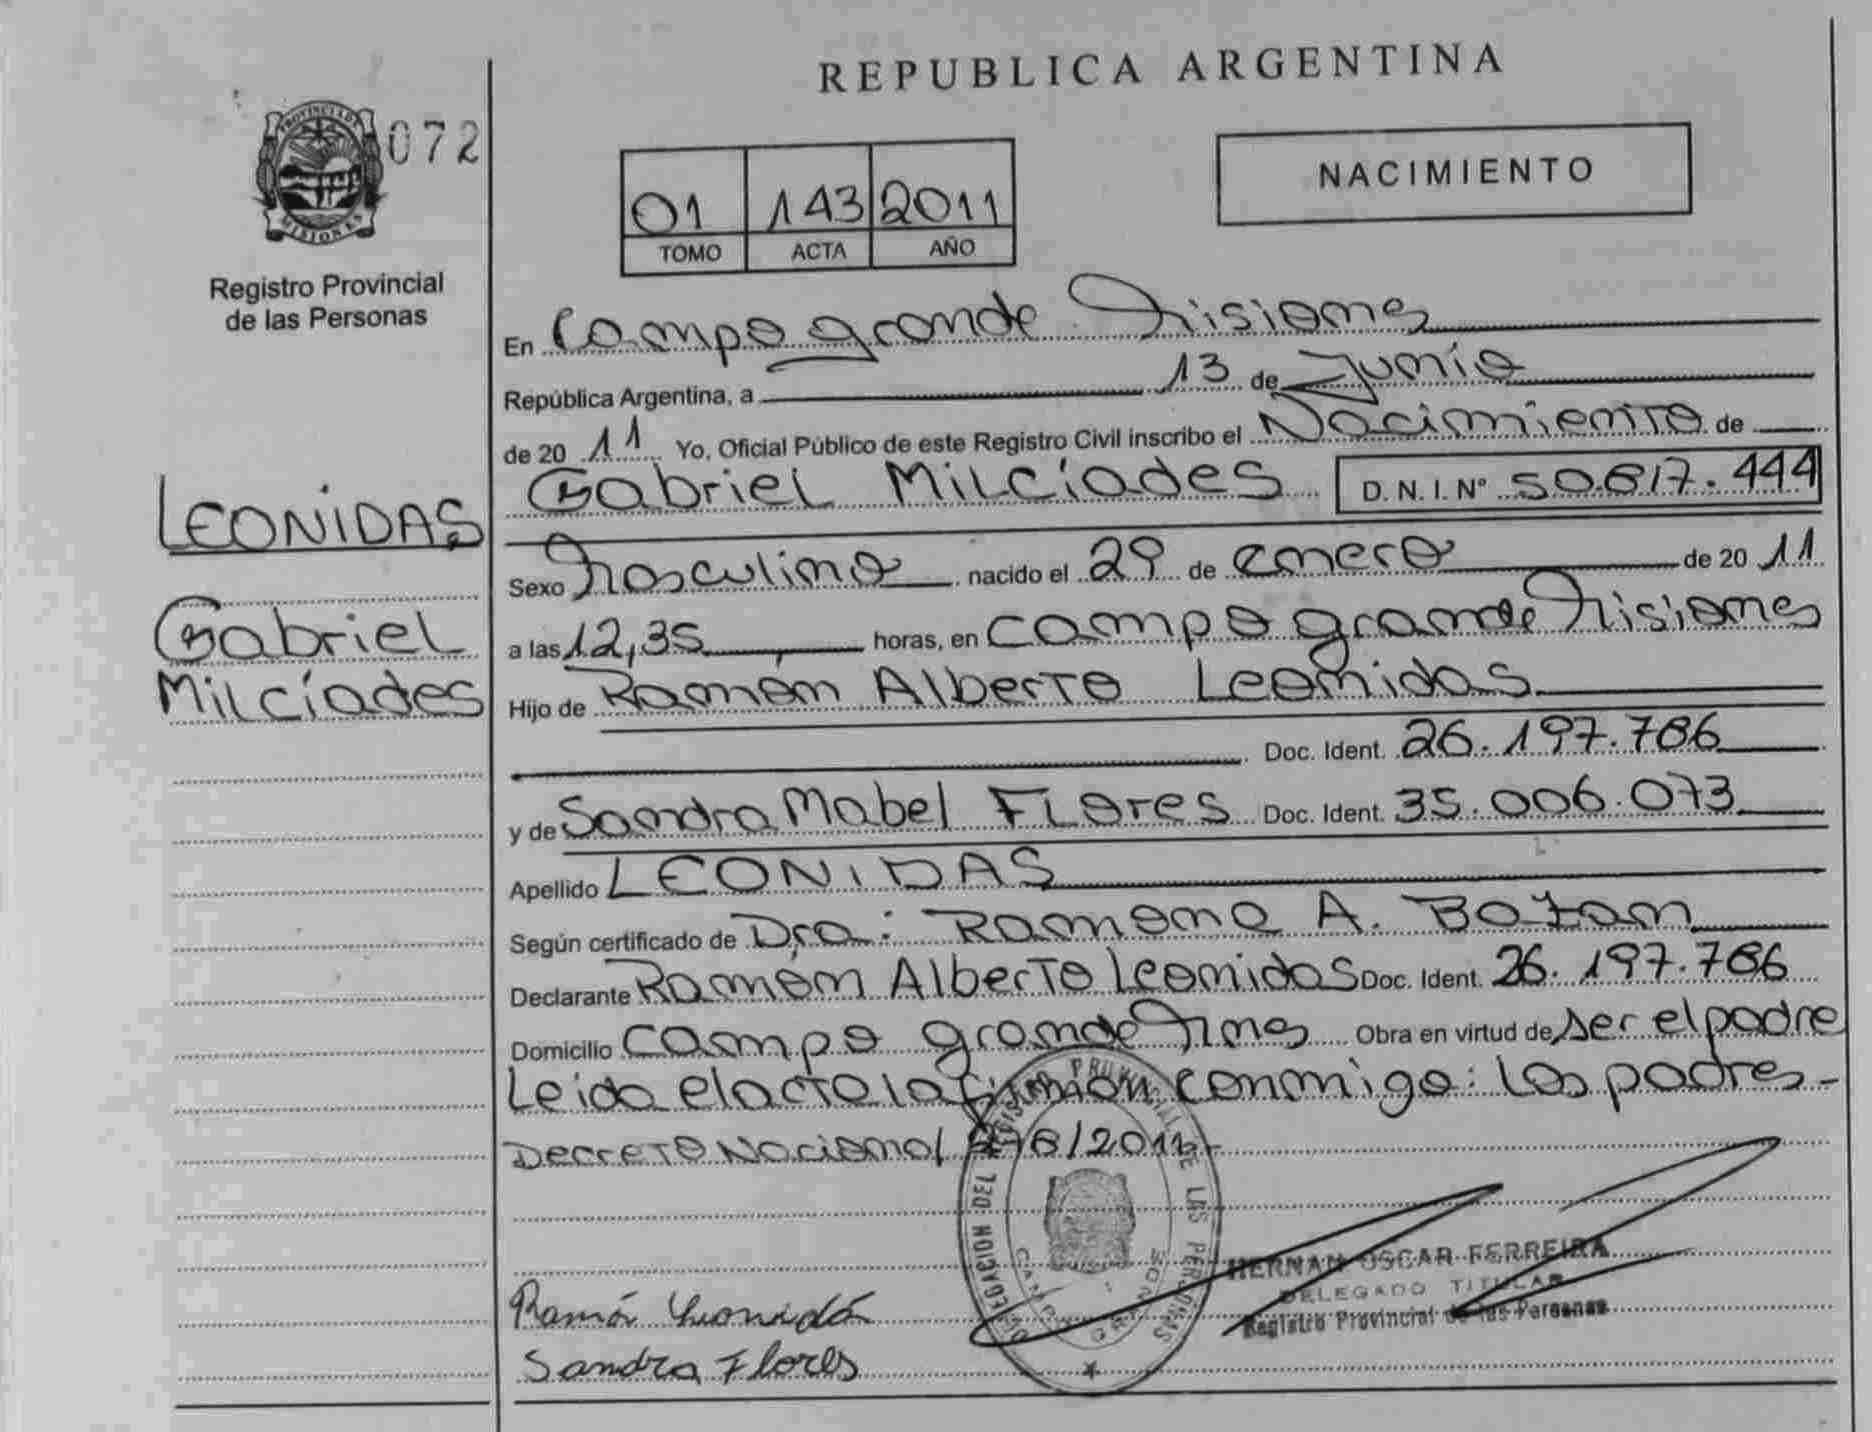 REPUBLICA ARGENTINA
PROVINCIA DE MISIONES
072
Registro Provincial
de las Personas
01 143 2011
TOMO ACTA AÑO
NACIMIENTO
En Campo grande Misiones
República Argentina, a 13 de Junio
de 20 11 Yo, Oficial Público de este Registro Civil inscribo el Nacimiento de
Gabriel Milcíades D. N. I. Nº 50.617.444
LEONIDAS
Gabriel
Milcíades
Sexo Masculino nacido el 29 de enero de 20 11
a las 12,35 horas, en Campo grande Misiones
Hijo de Ramon Alberto Leonidas
Doc. Ident. 26.197.786
y de Sandra Mabel Flores Doc. Ident. 35.006.073
Apellido LEONIDAS
Según certificado de Dra: Ramona A.
Declarante Ramón Alberto Leonidas Doc. Ident. 26.197.786
Domicilio Campo grande Mnes Obra en virtud de ser el padre
Leida el acta la firman conmigo: Los padres-
Decreto Nacional /2011-
DELEGACION DEL REGISTRO PROVINCIAL DE LAS PERSONAS
CAMPO GRANDE
HERNAN OSCAR FERREIRA
DELEGADO TITULAR
Registro Provincial de las Personas
Ramón Leonidas
Sandra Flores